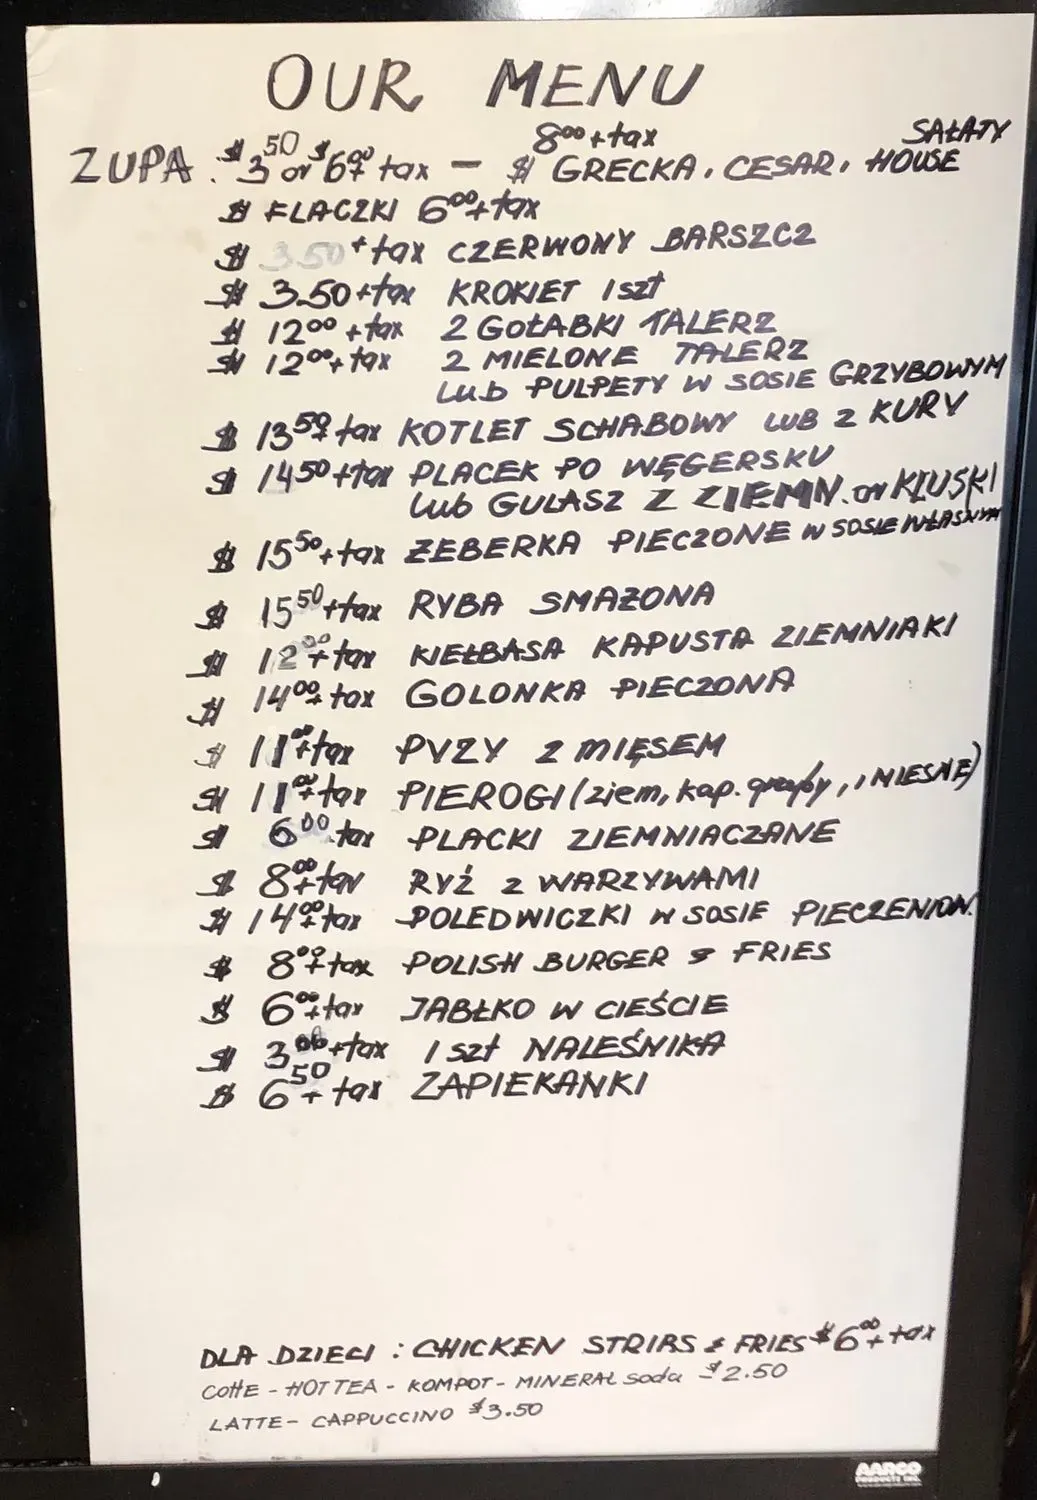 OUR MENU
8⁰⁰+tax SAŁATY
ZUPA. $3⁵⁰ or $6⁰⁰+ tax — $ GRECKA, CESAR, HOUSE
$ FLACZKI 6⁰⁰+tax
$ 3.50 +tax CZERWONY BARSZCZ
$ 3.50+tax KROKIET 1szt
$ 12⁰⁰+tax 2 GOŁABKI TALERZ
$ 12⁰⁰+tax 2 MIELONE TALERZ
LUB PULPETY W SOSIE GRZYBOWYM
$ 13⁵⁰+ tax KOTLET SCHABOWY LUB Z KURY
$ 14⁵⁰+tax PLACEK PO WĘGERSKU
lub GULASZ Z ZIEMN. or KLUSKI
$ 15⁵⁰+tax ŻEBERKA PIECZONE W SOSIE WŁASNYM
$ 15⁵⁰+tax RYBA SMAŻONA
$ 12⁰⁰+tax KIEŁBASA KAPUSTA ZIEMNIAKI
$ 14⁰⁰+tax GOLONKA PIECZONA
$ 11⁰⁰+tax PYZY Z MIĘSEM
$ 11⁰⁰+tax PIEROGI (ziem, kap. grzyby, i MIESNE)
$ 6⁰⁰ tax PLACKI ZIEMNIACZANE
$ 8⁰⁰+tax RYŻ Z WARZYWAMI
$ 14⁰⁰+tax POLEDWICZKI W SOSIE PIECZENIOW.
$ 8⁰⁰+tax POLISH BURGER & FRIES
$ 6⁰⁰+tax JABŁKO W CIEŚCIE
$ 3⁰⁰+tax 1 szt NALEŚNIKA
$ 6⁵⁰+ tax ZAPIEKANKI
DLA DZIECI : CHICKEN STRIBS & FRIES $6⁰⁰+tax
COFFE - HOT TEA - KOMPOT - MINERAŁ soda $2.50
LATTE - CAPPUCCINO $3.50
AARCO
PRODUCTS INC.